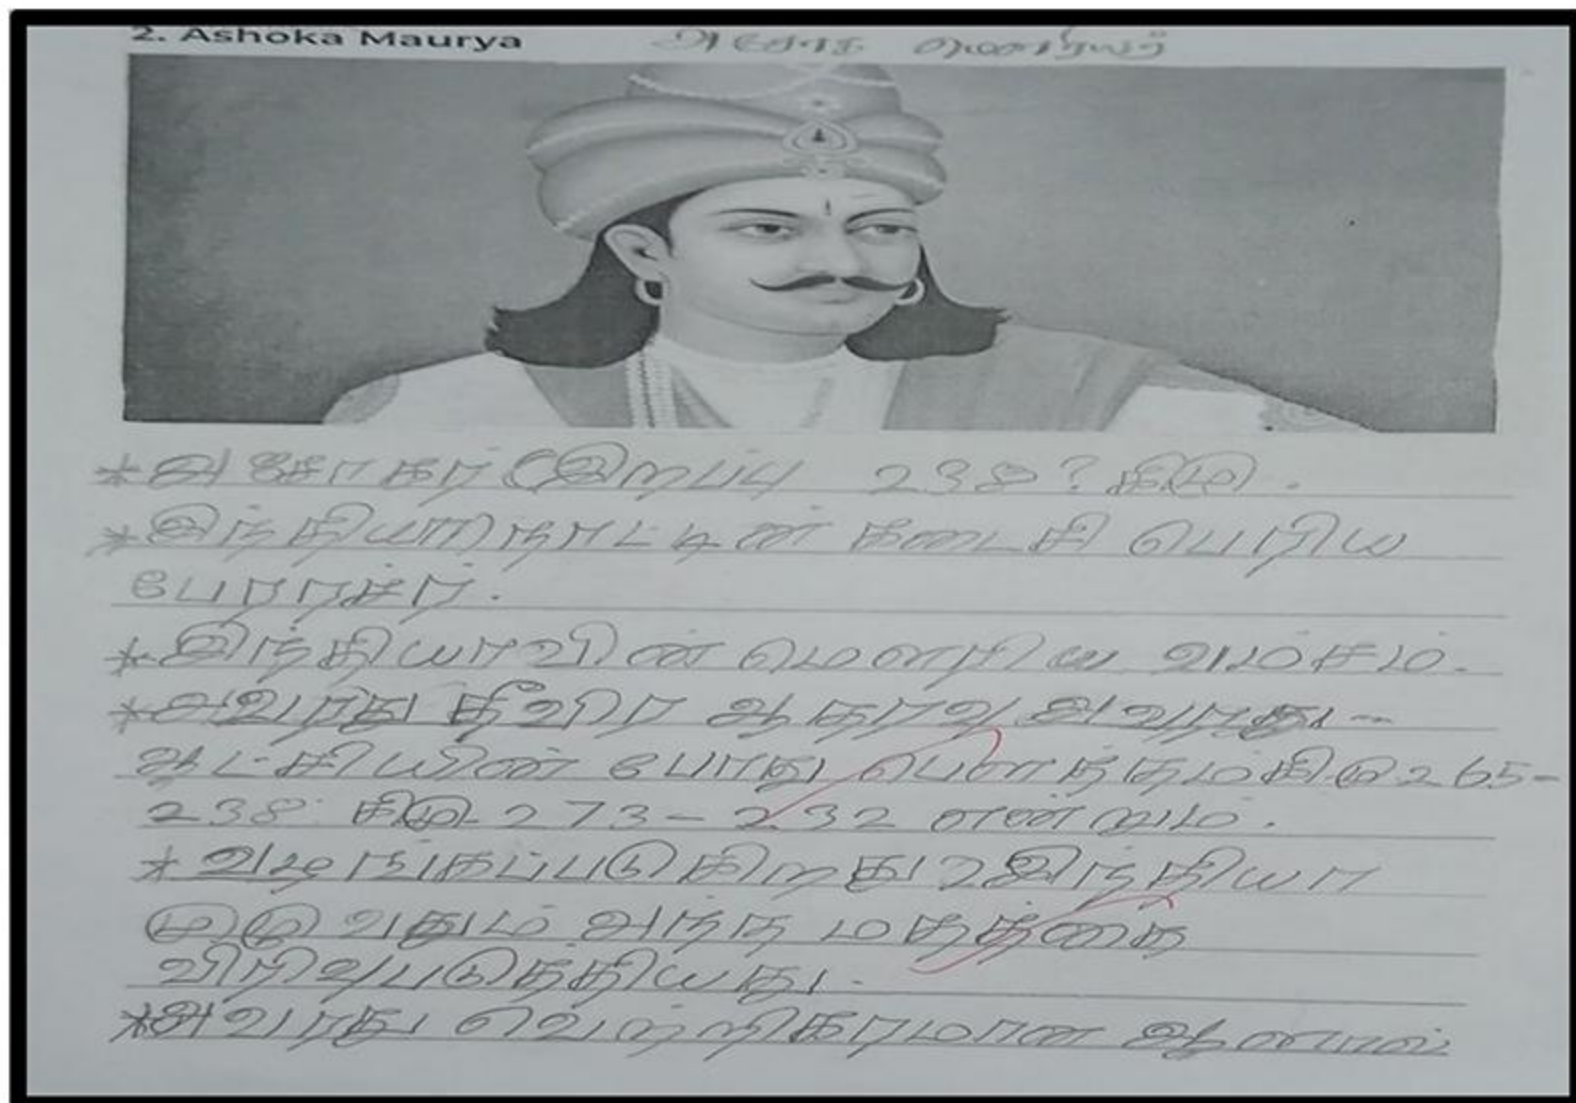 2. Ashoka Maurya அசோக மௌரியர்
*அசோகர் (இறப்பு 238? கிமு.
*இந்தியா) நாட்டின் கடைசி பெரிய
பேரரசர்.
*இந்தியாவின் மௌரிய வம்சம்.
*அவரது தீவிர ஆதரவு அவரது-
ஆட்சியின் போது பௌத்தம் கிமு 265-
238 கிமு 273-232 என்றும்.
*வழங்கப்படுகிறது 2இந்தியா
முழுவதும் அந்த மதத்தை
விரிவுபடுத்தியது.
*அவரது வெற்றிகரமான ஆனால்